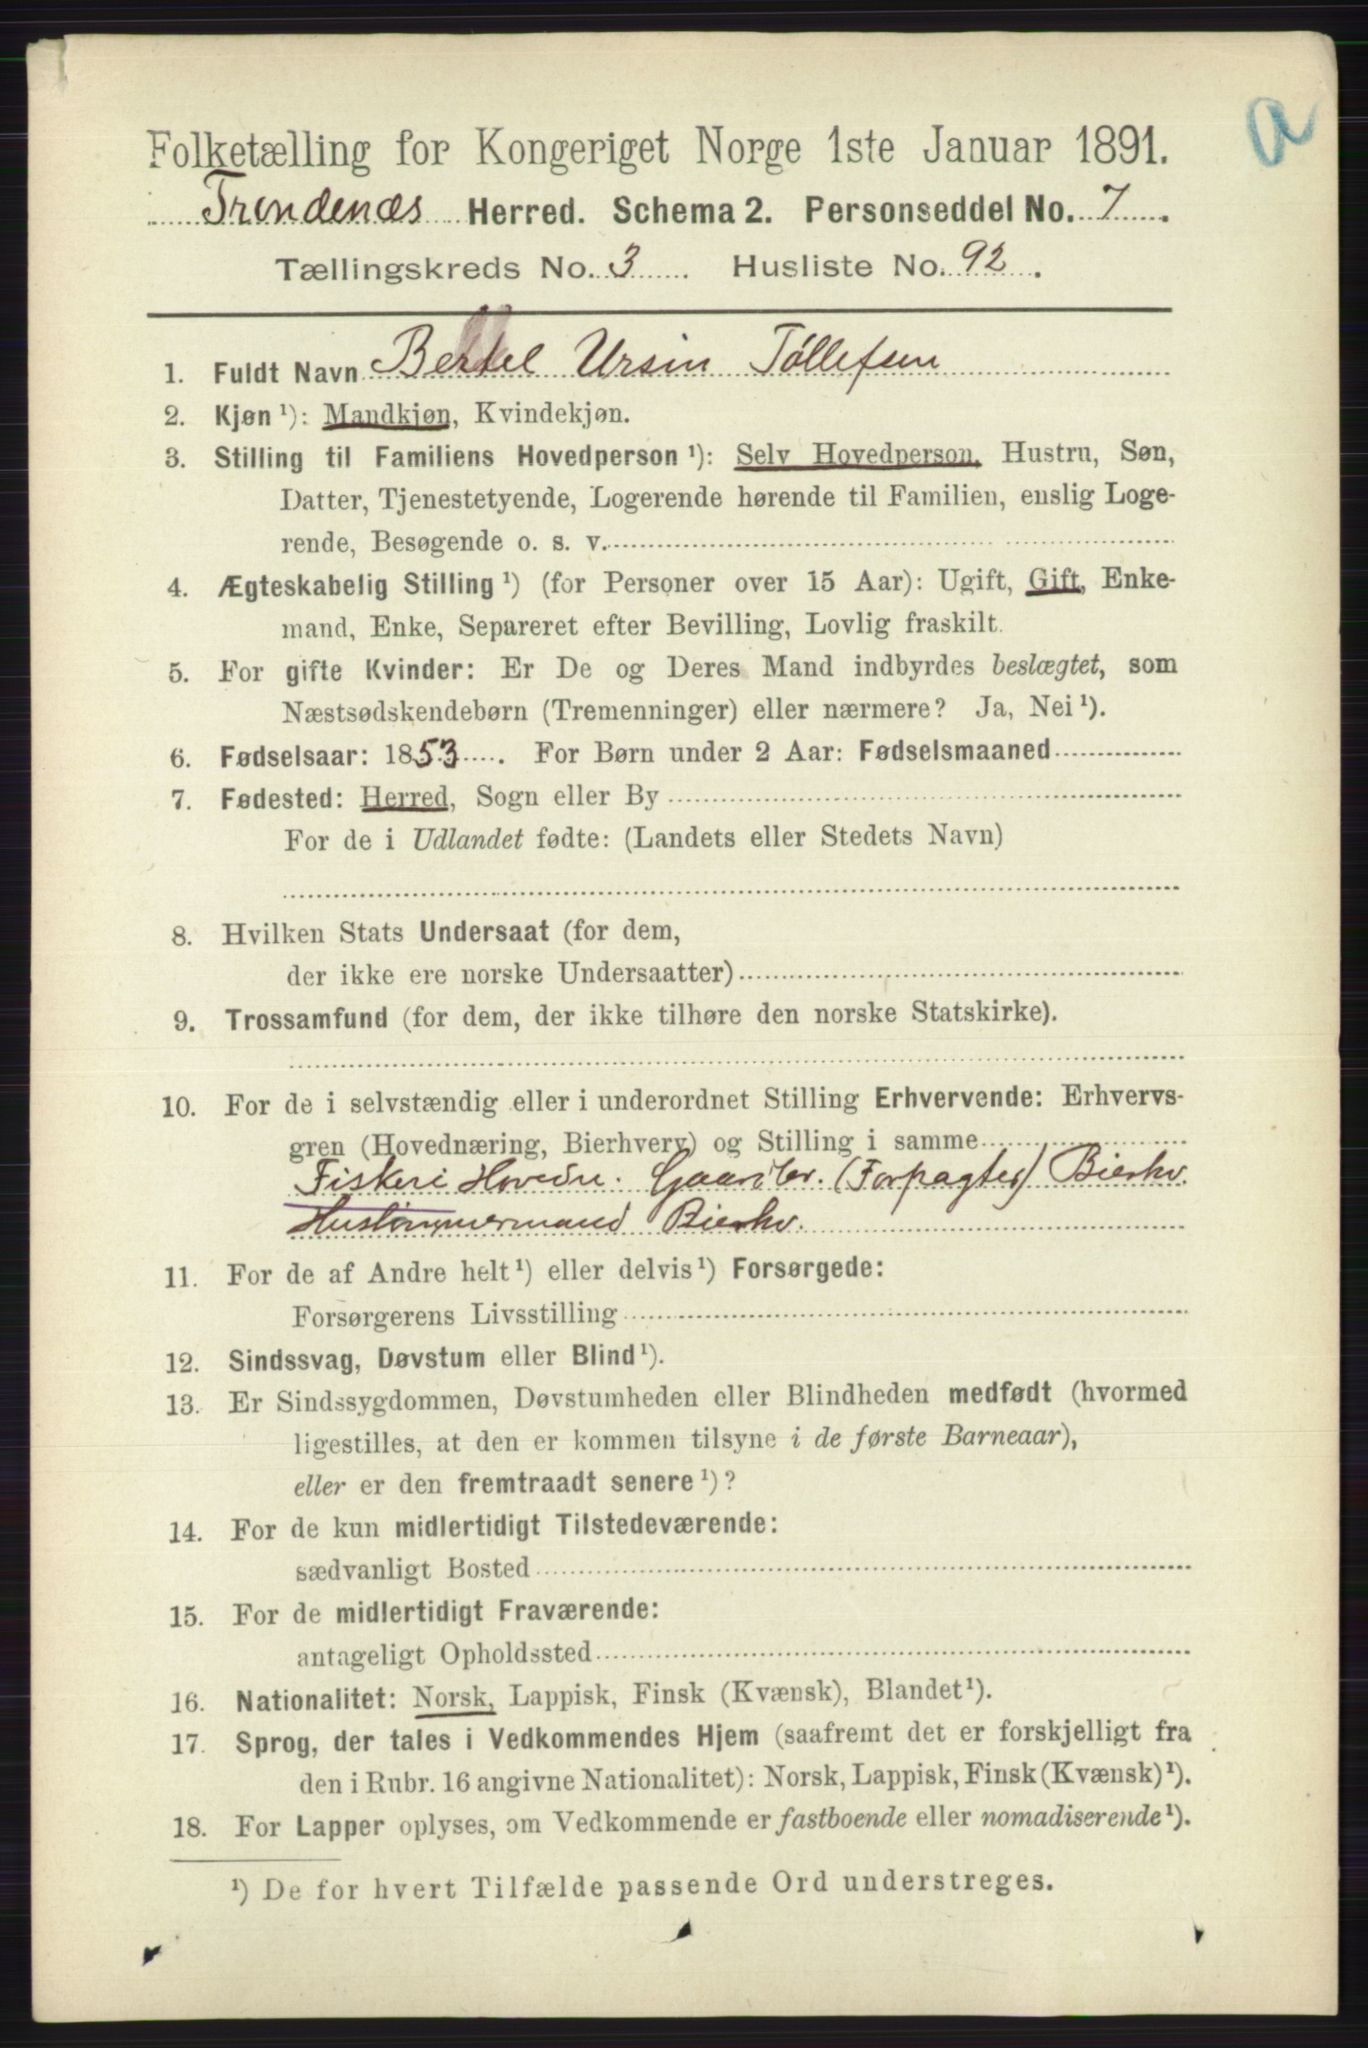 a
Folketælling for Kongeriget Norge 1ste Januar 1891.
Trondenæs Herred. Schema 2. Personseddel No. 7.
Tællingskreds No. 3. Husliste No. 92.
1. Fuldt Navn Bertel Ursin Tøllefsen
2. Kjøn ¹): Mandkjøn, Kvindekjøn.
3. Stilling til Familiens Hovedperson ¹): Selv Hovedperson, Hustru, Søn,
Datter, Tjenestetyende, Logerende hørende til Familien, enslig Loge-
rende, Besøgende o. s. v.
4. Ægteskabelig Stilling ¹) (for Personer over 15 Aar): Ugift, Gift, Enke-
mand, Enke, Separeret efter Bevilling, Lovlig fraskilt.
5. For gifte Kvinder: Er De og Deres Mand indbyrdes beslægtet, som
Næstsødskendebørn (Tremenninger) eller nærmere? Ja, Nei ¹).
6. Fødselsaar: 1853. For Børn under 2 Aar: Fødselsmaaned
7. Fødested: Herred, Sogn eller By
For de i Udlandet fødte: (Landets eller Stedets Navn)
8. Hvilken Stats Undersaat (for dem,
der ikke ere norske Undersaatter)
9. Trossamfund (for dem, der ikke tilhøre den norske Statskirke).
10. For de i selvstændig eller i underordnet Stilling Erhvervende: Erhvervs-
gren (Hovednæring, Bierhverv) og Stilling i samme
Fiskeri Hovedn. Gaardbr. (Forpagter) Bierhv.
Hustømmermand Bierhv.
11. For de af Andre helt ¹) eller delvis ¹) Forsørgede:
Forsørgerens Livsstilling
12. Sindssvag, Døvstum eller Blind ¹).
13. Er Sindssygdommen, Døvstumheden eller Blindheden medfødt (hvormed
ligestilles, at den er kommen tilsyne i de første Barneaar),
eller er den fremtraadt senere ¹)?
14. For de kun midlertidigt Tilstedeværende:
sædvanligt Bosted
15. For de midlertidigt Fraværende:
antageligt Opholdssted
16. Nationalitet: Norsk, Lappisk, Finsk (Kvænsk), Blandet ¹).
17. Sprog, der tales i Vedkommendes Hjem (saafremt det er forskjelligt fra
den i Rubr. 16 angivne Nationalitet): Norsk, Lappisk, Finsk (Kvænsk) ¹).
18. For Lapper oplyses, om Vedkommende er fastboende eller nomadiserende ¹).
¹) De for hvert Tilfælde passende Ord understreges.